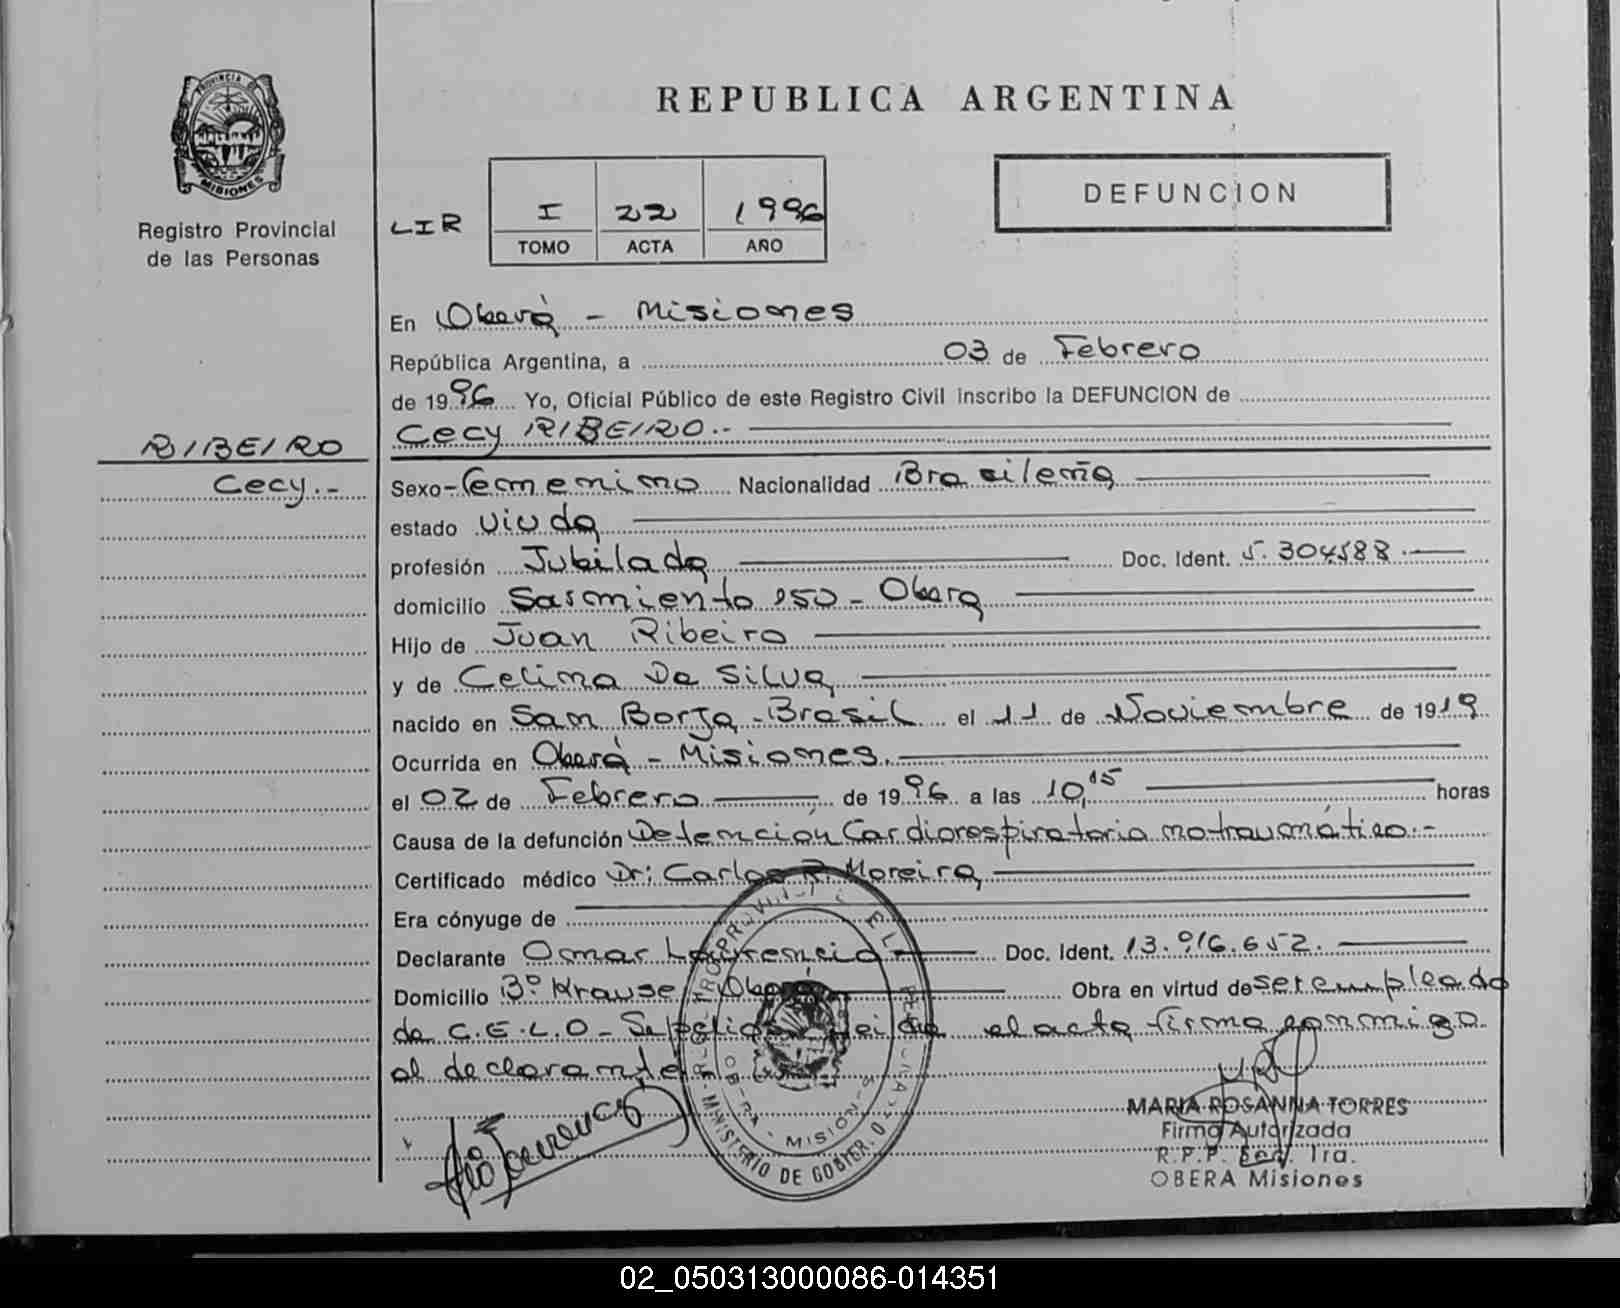 PROVINCIA DE
MISIONES
Registro Provincial
de las Personas
REPUBLICA ARGENTINA
LIR
I 22 1996
TOMO ACTA AÑO
DEFUNCION
En Oberá - Misiones
República Argentina, a 03 de Febrero
de 1996 Yo, Oficial Público de este Registro Civil inscribo la DEFUNCION de
RIBEIRO
Cecy.-
Cecy RIBEIRO.-
Sexo - femenino Nacionalidad Brasileña
estado viuda
profesión Jubilada Doc. Ident. 5.304.588.
domicilio Sarmiento 950 - Obera
Hijo de Juan Ribeiro
y de Celina Da Silva
nacido en San Borja - Brasil el 11 de Noviembre de 1919
Ocurrida en Oberá - Misiones.
el 02 de Febrero de 1996 a las 10,15 horas
Causa de la defunción Detención Cardiorespiratoria no traumático.-
Certificado médico Dr: Carlos R. Moreira
Era cónyuge de
Declarante Omar Lourencio Doc. Ident. 13.916.652.
Domicilio Bº Krause Oberá Obra en virtud de ser empleado
de C.E.L.O - Sepelios leida el acta firma conmigo
el declarante
MINISTERIO DE GOBIER. O
OBERA - MISIONES
MARIA ROSANNA TORRES
Firma Autorizada
R.P.P. Sec. 1ra.
OBERA Misiones
02_050313000086-014351